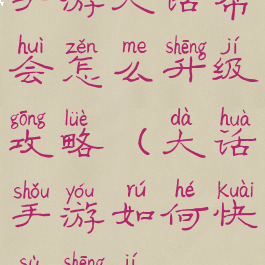 手游大话帮
huì zěn me shēng jí
会怎么升级
gōng lüè dà huà
攻略（大话
shǒu yóu rú hé kuài
手游如何快
sù shēng jí